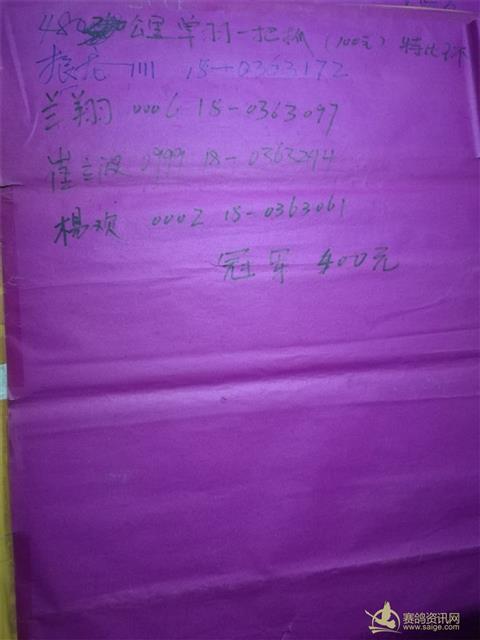 480公里单羽一把抓(100元)特比环
振龙 1111 18-0363172
兰翔 0006 18-0363097
崔兰波 0999 18-0363294
杨欢 0002 18-0363061
冠军 400元
赛鸽资讯网
www.saige.com